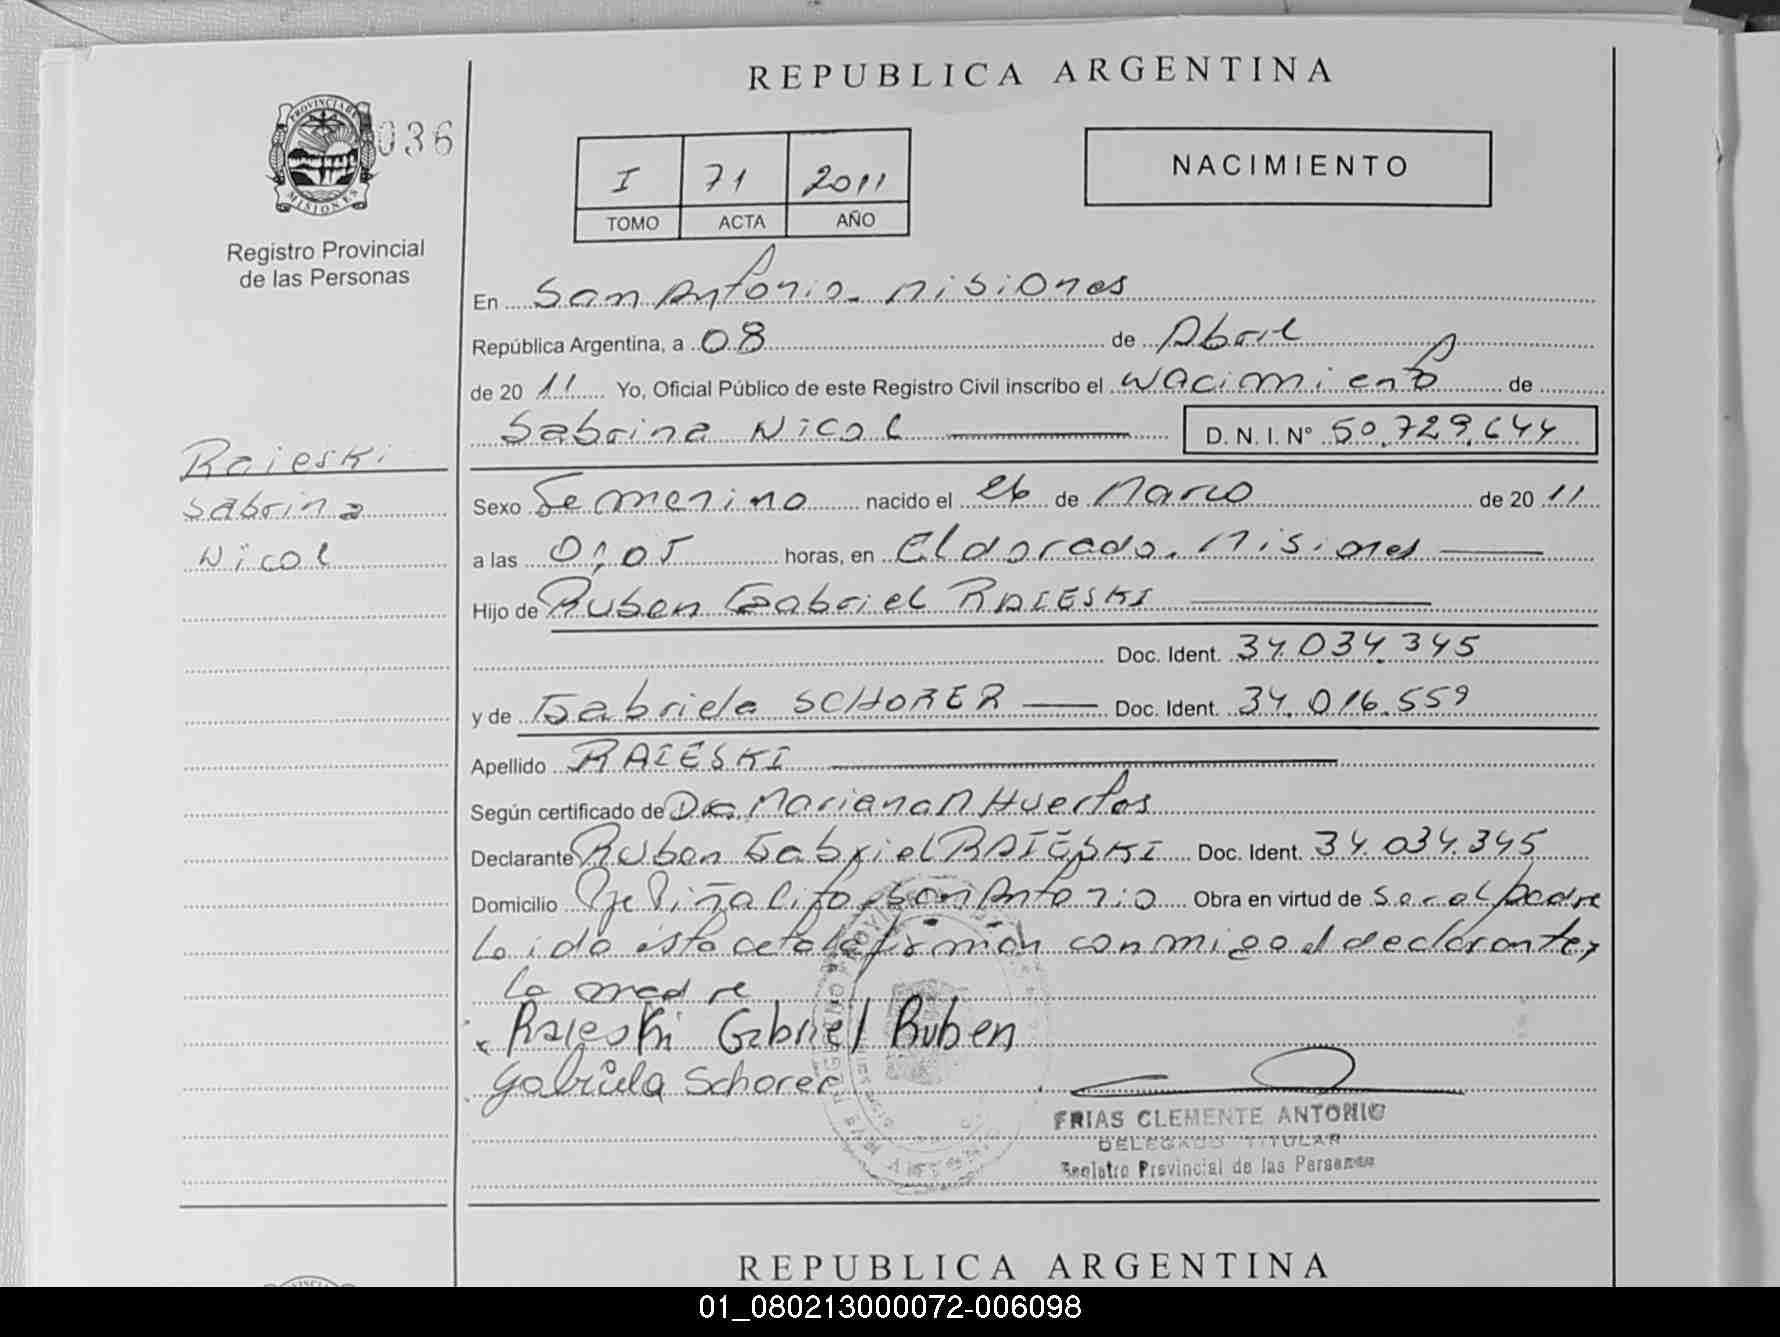 REPUBLICA ARGENTINA
PROVINCIA DE MISIONES
036
I 71 2011
TOMO ACTA AÑO
NACIMIENTO
Registro Provincial
de las Personas
En San Antonio - Misiones
República Argentina, a 08 de Abril
de 20 11 Yo, Oficial Público de este Registro Civil inscribo el Nacimiento de
Sabrina Nicol D. N. I. Nº 50.729.644
Raieski
Sabrina
Nicol
Sexo Femenino nacido el 26 de Marzo de 20 11
a las 0,05 horas, en Eldorado. Misiones
Hijo de Ruben Gabriel RAIESKI
Doc. Ident. 34.034.345
y de Gabriela SCHORER Doc. Ident. 34.016.559
Apellido RAIESKI
Según certificado de Dra. Mariana Huertas
Declarante Ruben Gabriel RAIESKI Doc. Ident. 34.034.345
Domicilio Piñalito, San Antonio Obra en virtud de ser el padre
Leida esta acta la firman conmigo el declarante y
la madre
Raieski Gabriel Ruben
Gabriela Schorer
FRIAS CLEMENTE ANTONIO
DELEGADO TITULAR
Registro Provincial de las Personas
REPUBLICA ARGENTINA
01_080213000072-006098